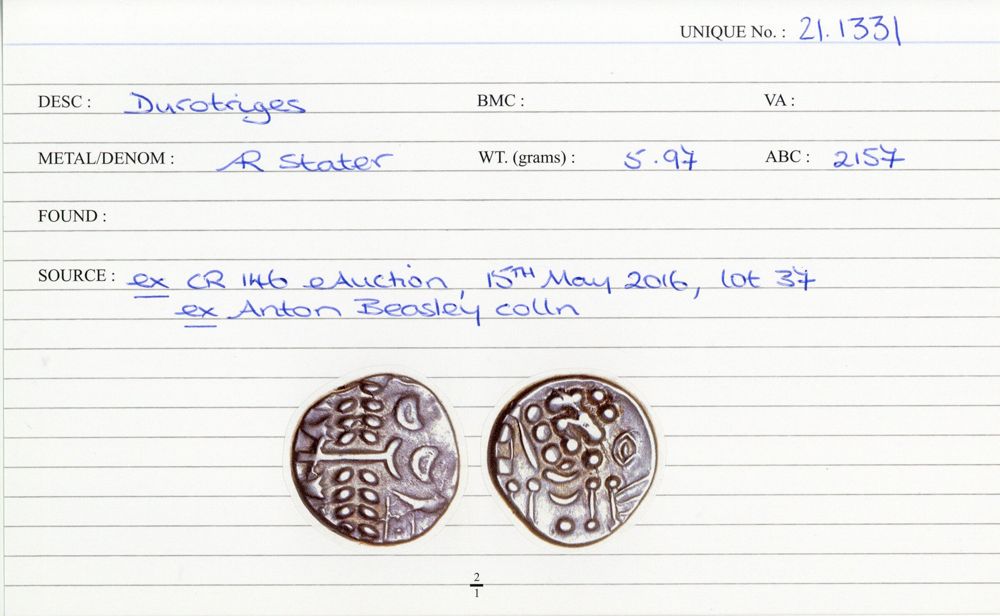 UNIQUE No. : 21.1331
DESC : Durotriges BMC : VA :
METAL/DENOM : AR Stater WT. (grams) : 5.97 ABC : 2157
FOUND :
SOURCE : ex CR 146 eAuction, 15TH May 2016, lot 37
ex Anton Beasley colln
2
1